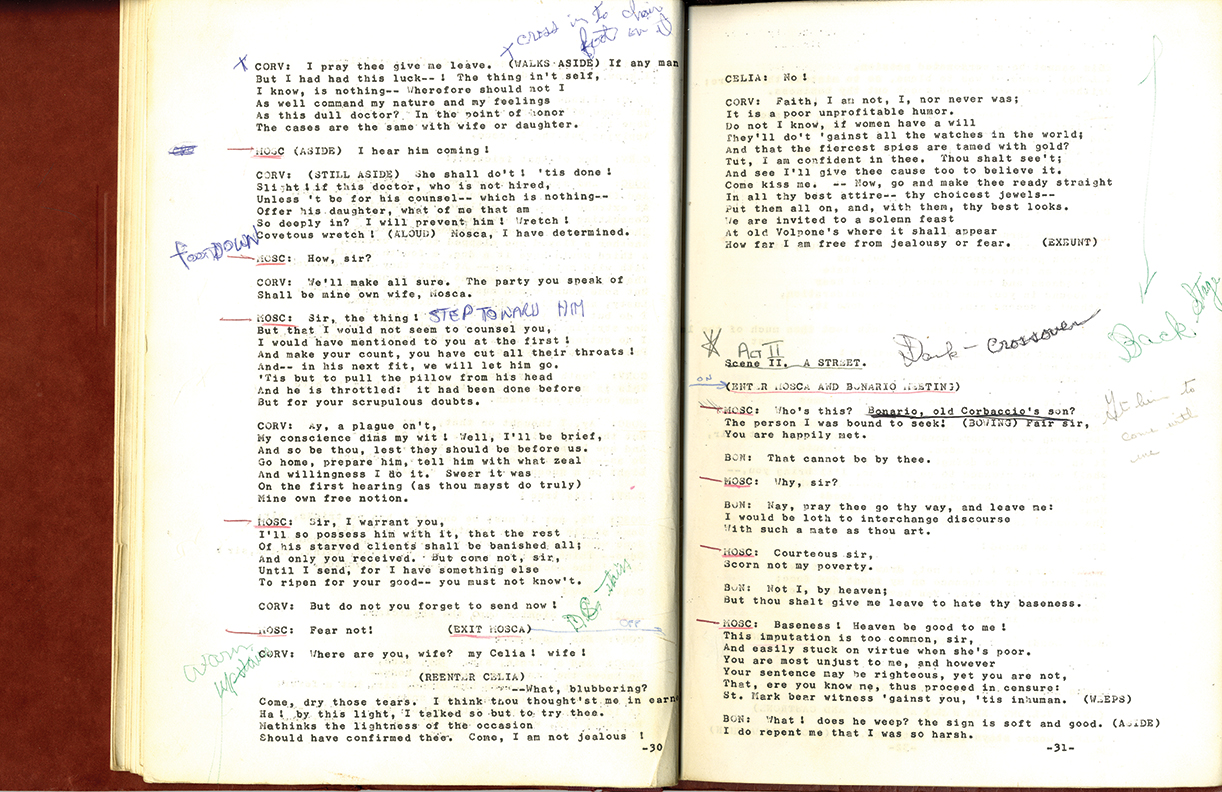 cross in to chair
foot on it
X CORV: I pray thee give me leave. (WALKS ASIDE) If any man
But I had had this luck-- ! The thing in't self,
I know, is nothing-- Wherefore should not I
As well command my nature and my feelings
As this dull doctor? In the point of honor
The cases are the same with wife or daughter.
MOSC (ASIDE) I hear him coming !
CORV: (STILL ASIDE) She shall do't ! 'tis done !
Slight ! if this doctor, who is not hired,
Unless 't be for his counsel-- which is nothing--
Offer his daughter, what of me that am
So deeply in? I will prevent him ! Wretch !
Covetous wretch ! (ALOUD) Mosca, I have determined.
foot DOWN
MOSC: How, sir?
CORV: We'll make all sure. The party you speak of
Shall be mine own wife, Mosca.
MOSC: Sir, the thing ! STEP TOWARD HIM
But that I would not seem to counsel you,
I would have mentioned to you at the first !
And make your count, you have cut all their throats !
And-- in his next fit, we will let him go.
'Tis but to pull the pillow from his head
And he is throttled: it had been done before
But for your scrupulous doubts.
CORV: Ay, a plague on't,
My conscience dims my wit ! Well, I'll be brief,
And so be thou, lest they should be before us.
Go home, prepare him, tell him with what zeal
And willingness I do it. Swear it was
On the first hearing (as thou mayst do truly)
Mine own free notion.
MOSC: Sir, I warrant you,
I'll so possess him with it, that the rest
Of his starved clients shall be banished all;
And only you received. But come not, sir,
Until I send, for I have something else
To ripen for your good-- you must not know't.
CORV: But do not you forget to send now !
D.S. stairs
MOSC: Fear not! (EXIT MOSCA) OFF
warn
upstairs
CORV: Where are you, wife? my Celia ! wife !
(REENTER CELIA)
--What, blubbering?
Come, dry those tears. I think thou thought'st me in earne
Ha ! by this light, I talked so but to try thee.
Methinks the lightness of the occasion
Should have confirmed thee. Come, I am not jealous !
-30
CELIA: No !
CORV: Faith, I am not, I, nor never was;
It is a poor unprofitable humor.
Do not I know, if women have a will
They'll do't 'gainst all the watches in the world;
And that the fiercest spies are tamed with gold?
Tut, I am confident in thee. Thou shalt see't;
And see I'll give thee cause too to believe it.
Come kiss me. -- Now, go and make thee ready straight
In all thy best attire-- thy choicest jewels--
Put them all on, and, with them, thy best looks.
We are invited to a solemn feast
At old Volpone's where it shall appear
How far I am free from jealousy or fear. (EXEUNT)
Back Stage
Dark - crossover
Act II
Scene II. A STREET.
ON
(ENTER MOSCA AND BONARIO MEETING)
MOSC: Who's this? Bonario, old Corbaccio's son?
The person I was bound to seek! (BOWING) Fair sir,
You are happily met.
Get him to
come with
me
BON: That cannot be by thee.
MOSC: Why, sir?
BON: Nay, pray thee go thy way, and leave me:
I would be loth to interchange discourse
With such a mate as thou art.
MOSC: Courteous sir,
Scorn not my poverty.
BON: Not I, by heaven;
But thou shalt give me leave to hate thy baseness.
MOSC: Baseness ! Heaven be good to me !
This imputation is too common, sir,
And easily stuck on virtue when she's poor.
You are most unjust to me, and however
Your sentence may be righteous, yet you are not,
That, ere you know me, thus proceed in censure:
St. Mark bear witness 'gainst you, 'tis inhuman. (WEEPS)
BON: What ! does he weep? the sign is soft and good. (ASIDE)
I do repent me that I was so harsh.
-31-